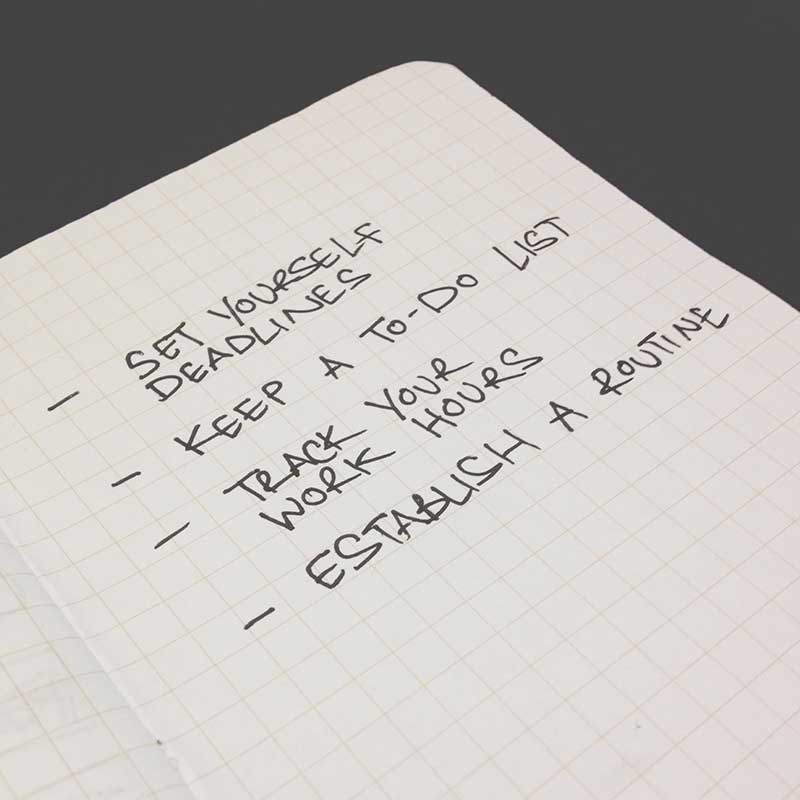 - SET YOURSELF
DEADLINES
- KEEP A TO-DO LIST
- TRACK YOUR
WORK HOURS
- ESTABLISH A ROUTINE